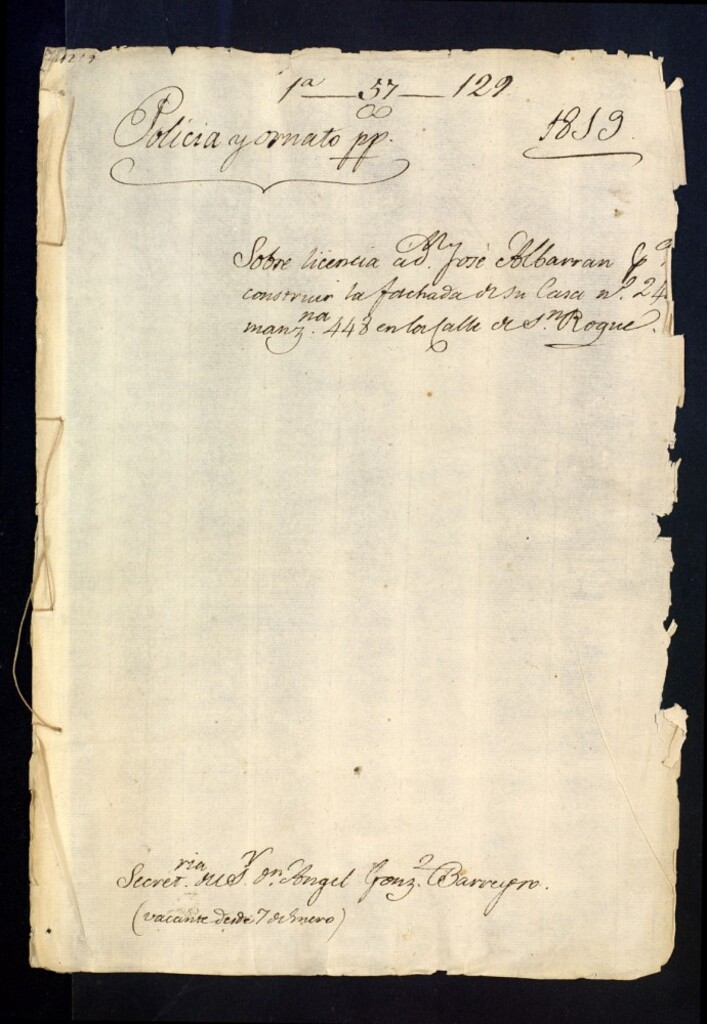 1ª — 57 — 129
Policia y ornato pp.
1819
Sobre licencia a d.ⁿ José Albarran p.ª
construir la fachada de su Casa n.º 24
manz.ⁿᵃ 448 en la Calle de S.ⁿ Roque.
Secret.ʳⁱᵃ del S.ʳ Dⁿ Angel Gonz.ᶻ Barreyro.
(vacante desde 7 de Enero)